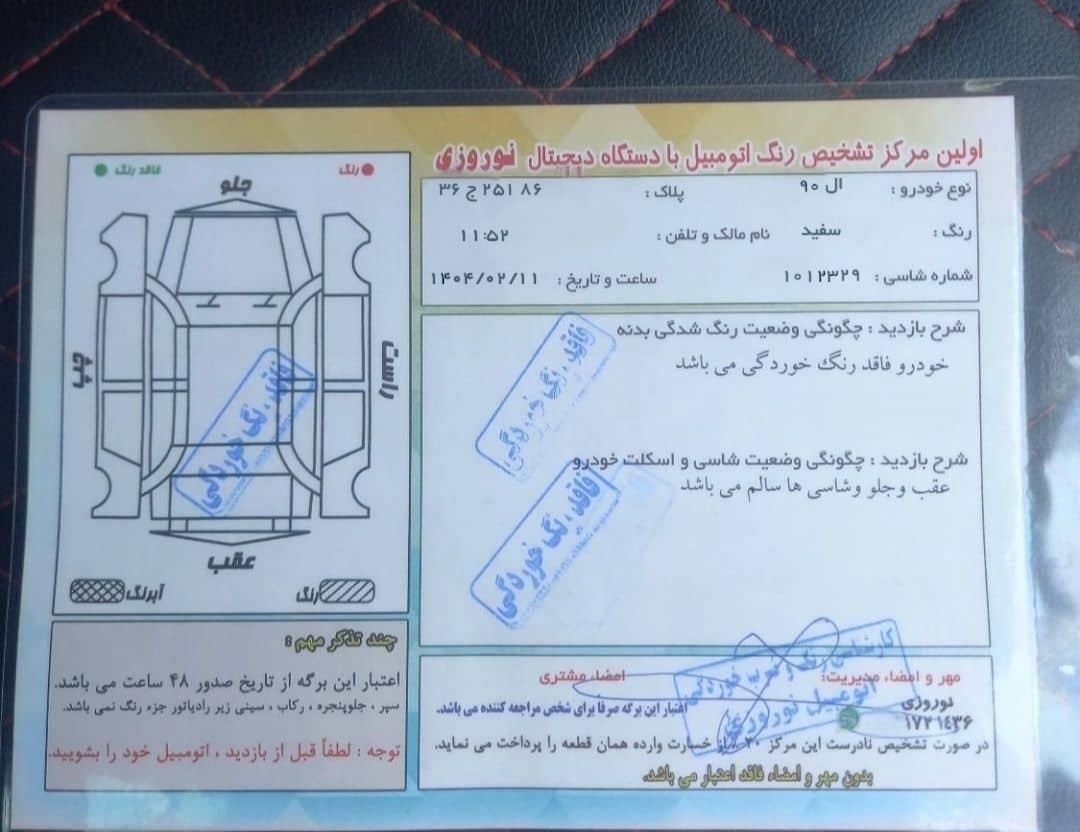 اولین مرکز تشخیص رنگ اتومبیل با دستگاه دیجیتال نوروزی
نوع خودرو : ال ۹۰ پلاک : ۸۶ ۲۵۱ ج ۳۶
رنگ : سفید نام مالک و تلفن : ۱۱:۵۲
شماره شاسی : ۱۰۱۲۳۲۹ ساعت و تاریخ : ۱۴۰۴/۰۲/۱۱
شرح بازدید : چگونگی وضعیت رنگ شدگی بدنه
خودرو فاقد رنگ خوردگی می باشد
فاقد رنگ خوردگی
شرح بازدید : چگونگی وضعیت شاسی و اسکلت خودرو
عقب و جلو و شاسی ها سالم می باشد
فاقد رنگ خوردگی
رنگ
فاقد رنگ
جلو
راست
چپ
فاقد رنگ خوردگی
عقب
رنگ
آبرنگ
مهر و امضاء مدیریت:
امضاء مشتری
کارشناسی رنگ و
اتومبیل نوروزی
نوروزی
اعتبار این برگه صرفا برای شخص مراجعه کننده می باشد.
در صورت تشخیص نادرست این مرکز ۲۰ از خسارت وارده همان قطعه را پرداخت می نماید.
بدون مهر و امضاء فاقد اعتبار می باشد.
چند تذکر مهم :
اعتبار این برگه از تاریخ صدور ۴۸ ساعت می باشد.
سپر ، جلوپنجره ، رکاب ، سینی زیر رادیاتور جزء رنگ نمی باشد.
توجه : لطفاً قبل از بازدید ، اتومبیل خود را بشویید.